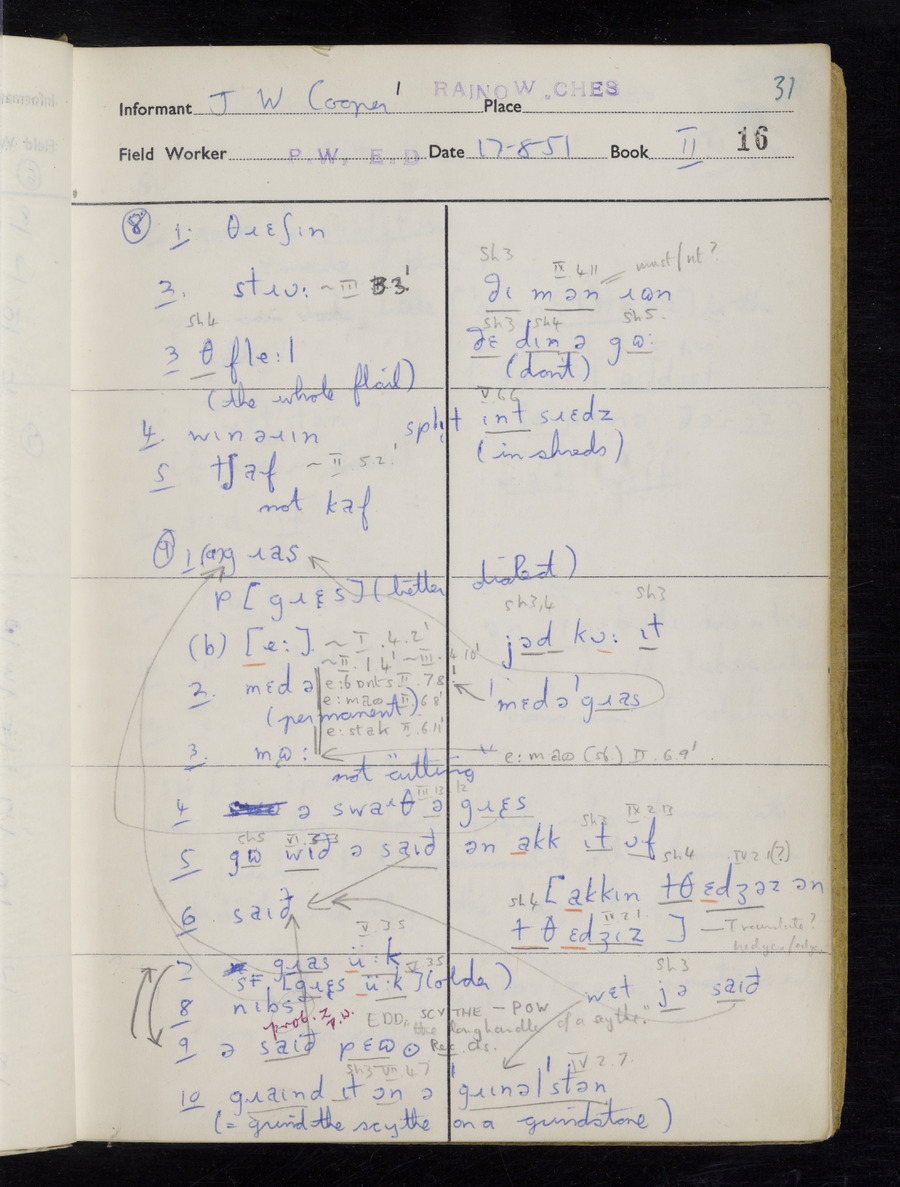 31
RAINOW . CHES
Informant J W Cooper Place
Field Worker P. W. E. D Date 17-8-51 Book II 16
⑧ 1. θɹɛʃin
2. stɹʊ: ~ III 3 3'
sh4
3 θ fle:l
(the whole flail)
4. winəɹin
5 tʃaf ~ II 5.2.'
not kaf
sh3 IX 4 11 must/nt?
ðɪ mən ɹɷn
sh3 sh4 sh5.
ðɛ dɪn ə gɷ:
(don't)
V.6.6
split int sɹɛdz
(in shreds)
⑨ 1 (a) gɹas
p [gɹɛs] (better dialect)
(b) [e:]. ~ I .4.2'
~ II .1 4' ~ III .4 10'
2. mɛdə
e:bɒnts II .7 8'
(permanent)
e:maɷ II 6 8'
e:stak II .6.11'
3. mɷ:
not cutting
sh3,4 sh3
jəd kʊ: ɪt
'mɛdə'gɹas
e:maɷ (sb.) II .6.9'
III 13. 12
4 ə swaɪθ ə gɹɛs
sh5 VI.3 3 sh3 IX 2 13
5 gɷ wɪð ə saɪð ən akk ɪt ʊf
sh4 IV 2 1(?)
sh4 [akkin tθ ɛdʒəz ən
IV 2 1.
t θ ɛdʒɪz ] — Translate?
hedges/edges
6. saɪð
V 3 5
7 gɹas ü:k
V 3 5
sf [gɹɛs ü:k] (older)
8 nibs
prob. z P.W.
EDD, SCYTHE – POW
"the longhandle of a scythe."
Rec. Cs.
sh3
wɛt jə saɪð
9 ə saɪð pɛɷ ⊙
sh3 VII 4.7 IV 2.7.
10 gɹaɪnd ɪt ɔn ə 'gɹɪnəl'stən
(= grind the scythe on a grindstone)